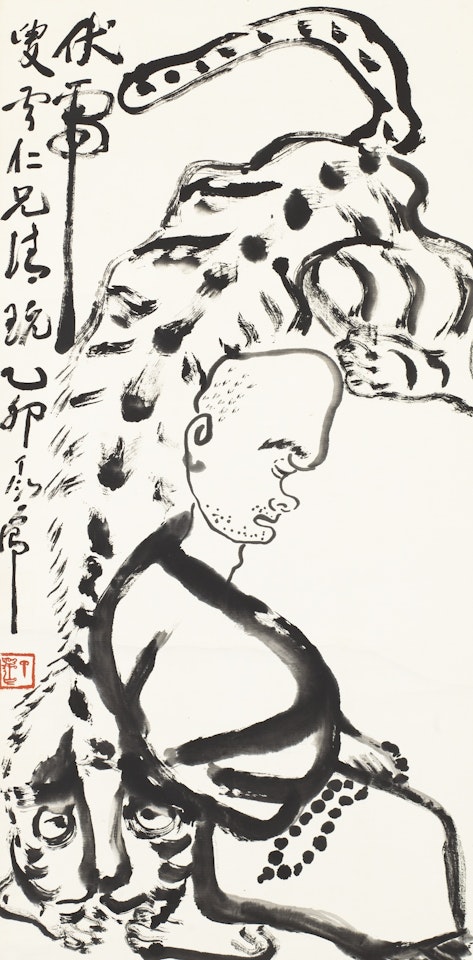 伏虎
叟云仁兄清玩乙卯丁衍庸